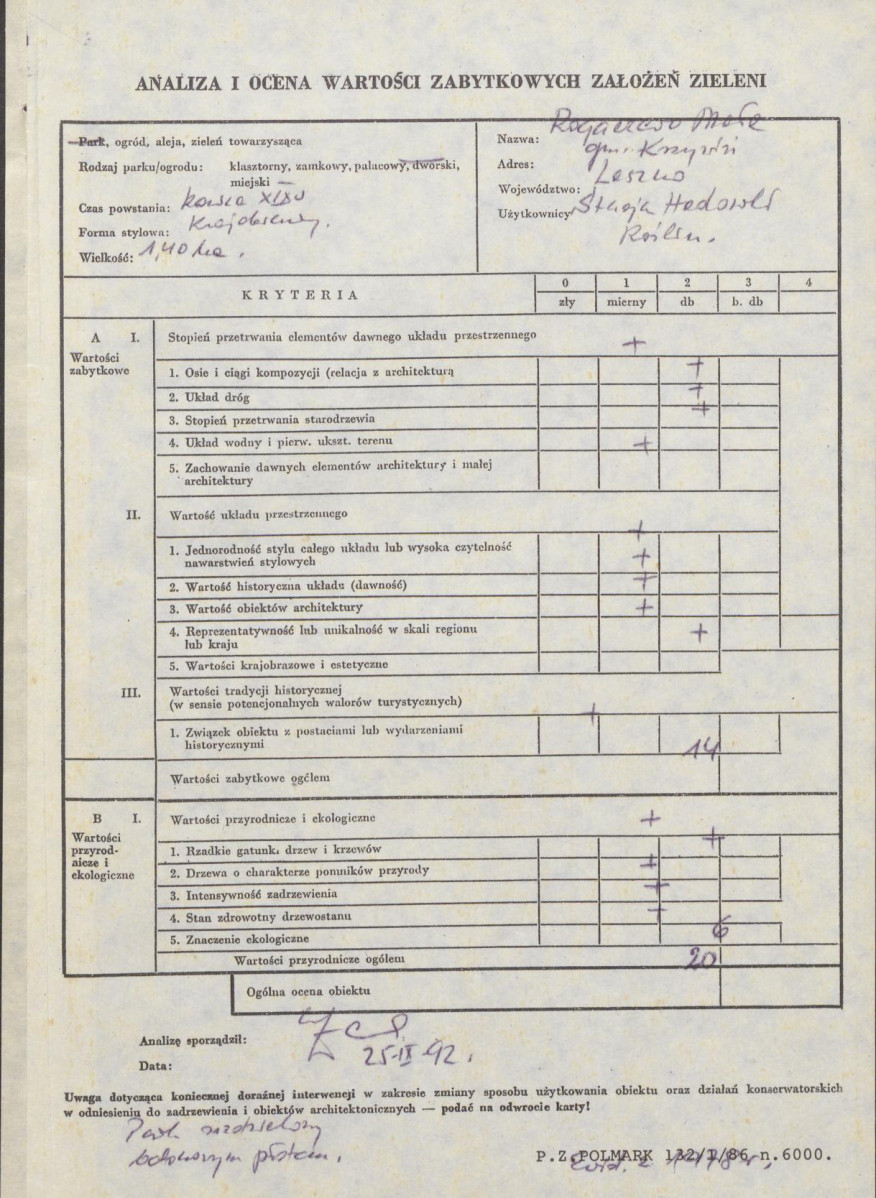 ANALIZA I OCENA WARTOŚCI ZABYTKOWYCH ZAŁOŻEŃ ZIELENI
Park, ogród, aleja, zieleń towarzysząca
Rodzaj parku/ogrodu: klasztorny, zamkowy, pałacowy, dworski,
miejski —
Czas powstania: koniec XIX w
Forma stylowa: Krajobrazowy.
Wielkość: 1,40 ha.
Nazwa: Rogaczewo Małe
Adres: gm. Krzywiń
Województwo: Leszno
Użytkownicy Stacja Hodowli
Roślin.
KRYTERIA
0 1 2 3 4
zły mierny db b. db
A I. Stopień przetrwania elementów dawnego układu przestrzennego
Wartości
zabytkowe
+
1. Osie i ciągi kompozycji (relacja z architekturą +
2. Układ dróg +
3. Stopień przetrwania starodrzewia +
4. Układ wodny i pierw. ukszt. terenu +
5. Zachowanie dawnych elementów architektury i małej
architektury
II. Wartość układu przestrzennego
+
1. Jednorodność stylu całego układu lub wysoka czytelność
nawarstwień stylowych +
2. Wartość historyczna układu (dawność) +
3. Wartość obiektów architektury +
4. Reprezentatywność lub unikalność w skali regionu
lub kraju +
5. Wartości krajobrazowe i estetyczne
III. Wartości tradycji historycznej
(w sensie potencjonalnych walorów turystycznych)
+
1. Związek obiektu z postaciami lub wydarzeniami
historycznymi
14
Wartości zabytkowe ogółem
B I. Wartości przyrodnicze i ekologiczne +
Wartości
przyrod-
nicze i
ekologiczne
1. Rzadkie gatunki drzew i krzewów +
2. Drzewa o charakterze pomników przyrody +
3. Intensywność zadrzewienia +
4. Stan zdrowotny drzewostanu +
5. Znaczenie ekologiczne 6
Wartości przyrodnicze ogółem 20
Ogólna ocena obiektu
Analizę sporządził:
Data: 25-IX-92.
Uwaga dotycząca koniecznej doraźnej interwencji w zakresie zmiany sposobu użytkowania obiektu oraz działań konserwatorskich
w odniesieniu do zadrzewienia i obiektów architektonicznych — podać na odwrocie karty!
Park rozdzielony
betonowym płotem.
P.Z.POLMARK 132/I/86 n.6000.